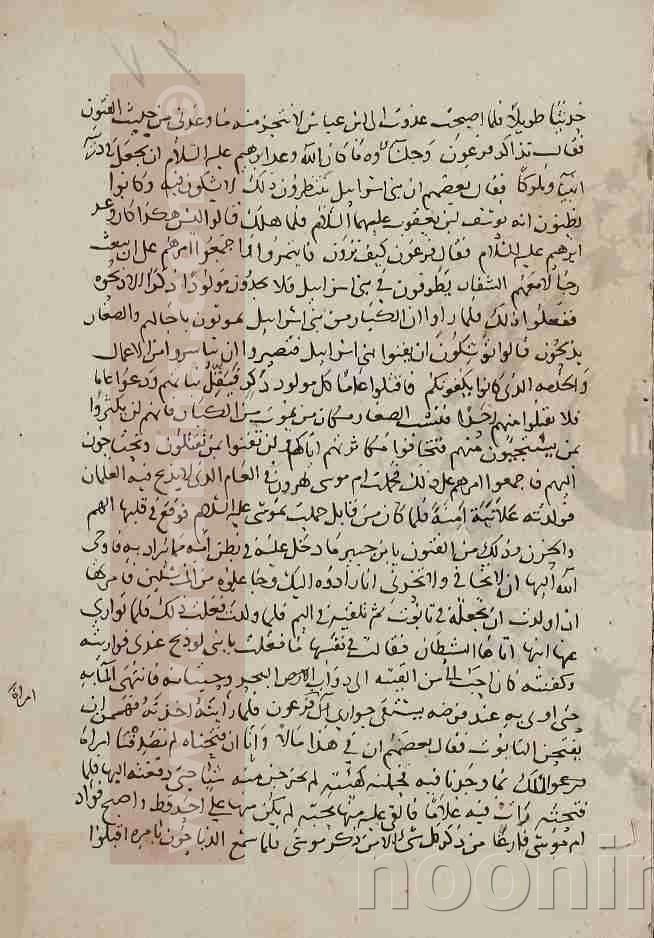 حديثا طويلا فلما اصبحت غدوت الى ابن عباس لانتجز منه ما وعدنى من حديث الفتون
فقال تذاكر فرعون وجلساؤه ما كان الله وعد ابرهيم عليه السلام ان يجعل فى ذريته
انبيا وملوكا فقال بعضهم ان بنى اسرائيل ينتظرون ذلك لا يشكون فيه وكانوا
يظنون انه يوسف بن يعقوب عليهما السلام فلما هلك قالوا ليس هكذا كان وعد
ابرهيم عليه السلام فقال فرعون كيف ترون فايتمروا اجمعوا امرهم على ان يبعث
رجالا معهم الشفار يطوفون فى بنى اسرائيل فلا يجدون مولودا ذكرا الا ذبحوه
ففعلوا ذلك فلما راوا ان الكبار من بنى اسرائيل يموتون باجالهم والصغار
يذبحون قالوا توشكون ان يفنوا بنى اسرائيل فتصيروا ان تباشروا من الاعمال
والخدمه الذى كانوا يكفونكم فاقتلوا عاما كل مولود ذكر فيقل بناتهم ودعوا عاما
فلا تقتلوا منهم احدا فتشب الصغار مكان من يموت من الكبار فانهم لن يكثروا
بمن تستحيون منهم فتخافوا مكاثرتهم اياكم ولن تفنوا بمن تقتلون وتحتاجون
اليهم فاجمعوا امرهم على ذلك فحملت ام موسى بهرون فى العام الذى لا يذبح فيه الغلمان
فولدته علانية امنة فلما كان من قابل حملت بموسى عليه السلام فوقع فى قلبها الهم
والحزن وذلك من الفتون يا بن جبير ما دخل عليه فى بطن امه مما يراد به فاوحى
الله اليها ان لا تخافى ولا تحزنى انا رادوه اليك وجاعلوه من المرسلين فامرها
اذا ولدت ان تجعله فى تابوت ثم تلقيه فى اليم فلما ولدت فعلت ذلك فلما توارى
عنها ابنها اتاها الشيطان فقالت فى نفسها ما فعلت بابنى لو ذبح عندى فواريته
وكفنته كان احب الى من القيته الى دواب البحر وحيتانه فانتهى الما به
حتى اوفى به عند فرضه يستقى جوارى ال فرعون فلما راينه اخذنه فهممن ان
يفتحن التابوت فقال بعضهم ان فى هذا مالا وانا ان فتحناه لم تصدقنا امراة
فرعو الملك بما وجدنا فيه فحملنه كهيئته لم يخرجن منه شيئا حتى دفعنه اليها فلما
فتحته رات فيه غلاما فالقى عليه منها محبته لم يكن منها على احد قط واصبح فواد
ام موسى فارغا من ذكر كل شى الا من ذكر موسى فلما سمع الذباحون بامره اقبلوا
امراة
noonin